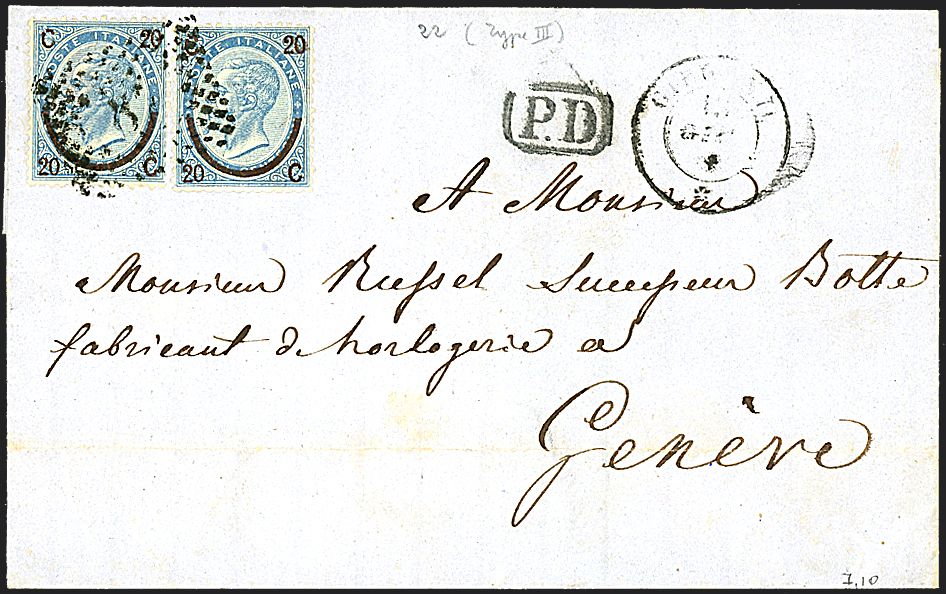 C 20
POSTE ITALIANE
20 C.
20
POSTE ITALIANE
20 C.
22 (Type III)
P.D
A Monsieur
Monsieur Russel Successeur Botte
fabricant d'horlogerie a
Genève
1,10